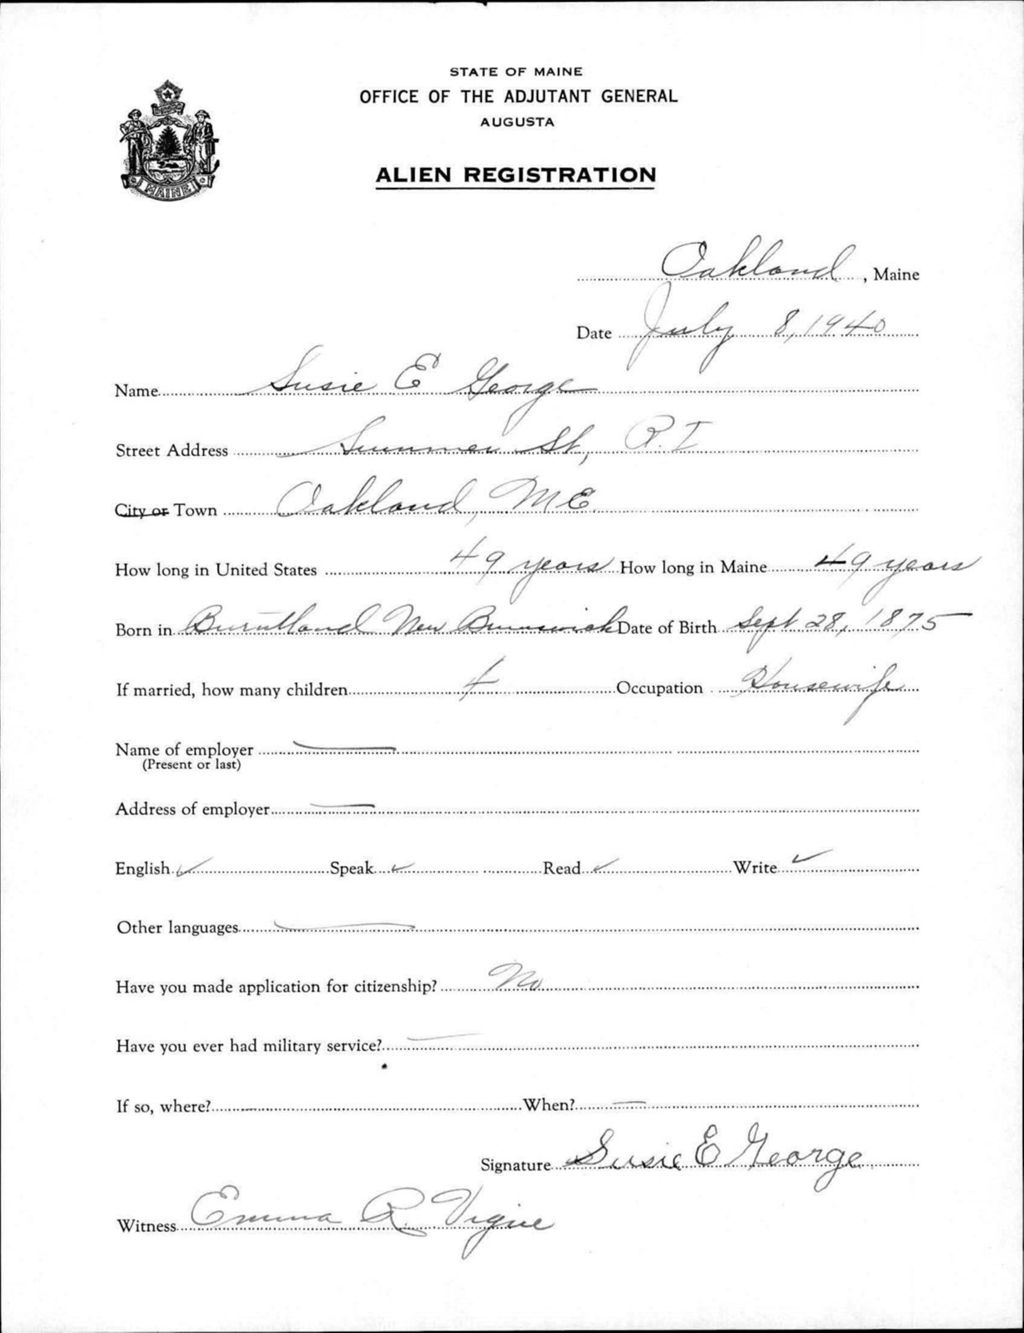 STATE OF MAINE
OFFICE OF THE ADJUTANT GENERAL
AUGUSTA
ALIEN REGISTRATION
MAINE
Oakland, Maine
Date July 8, 1940
Name Susie E George
Street Address Summer St, R.I
City or Town Oakland, ME.
How long in United States 49 years How long in Maine 49 years
Born in Burntland New Brunswick Date of Birth Sept 28, 1875
If married, how many children 4 Occupation Housewife
Name of employer —
(Present or last)
Address of employer —
English ✓ Speak ✓ Read ✓ Write ✓
Other languages —
Have you made application for citizenship? No
Have you ever had military service? —
If so, where? When? —
Signature Susie E George
Witness Emma R Vigue